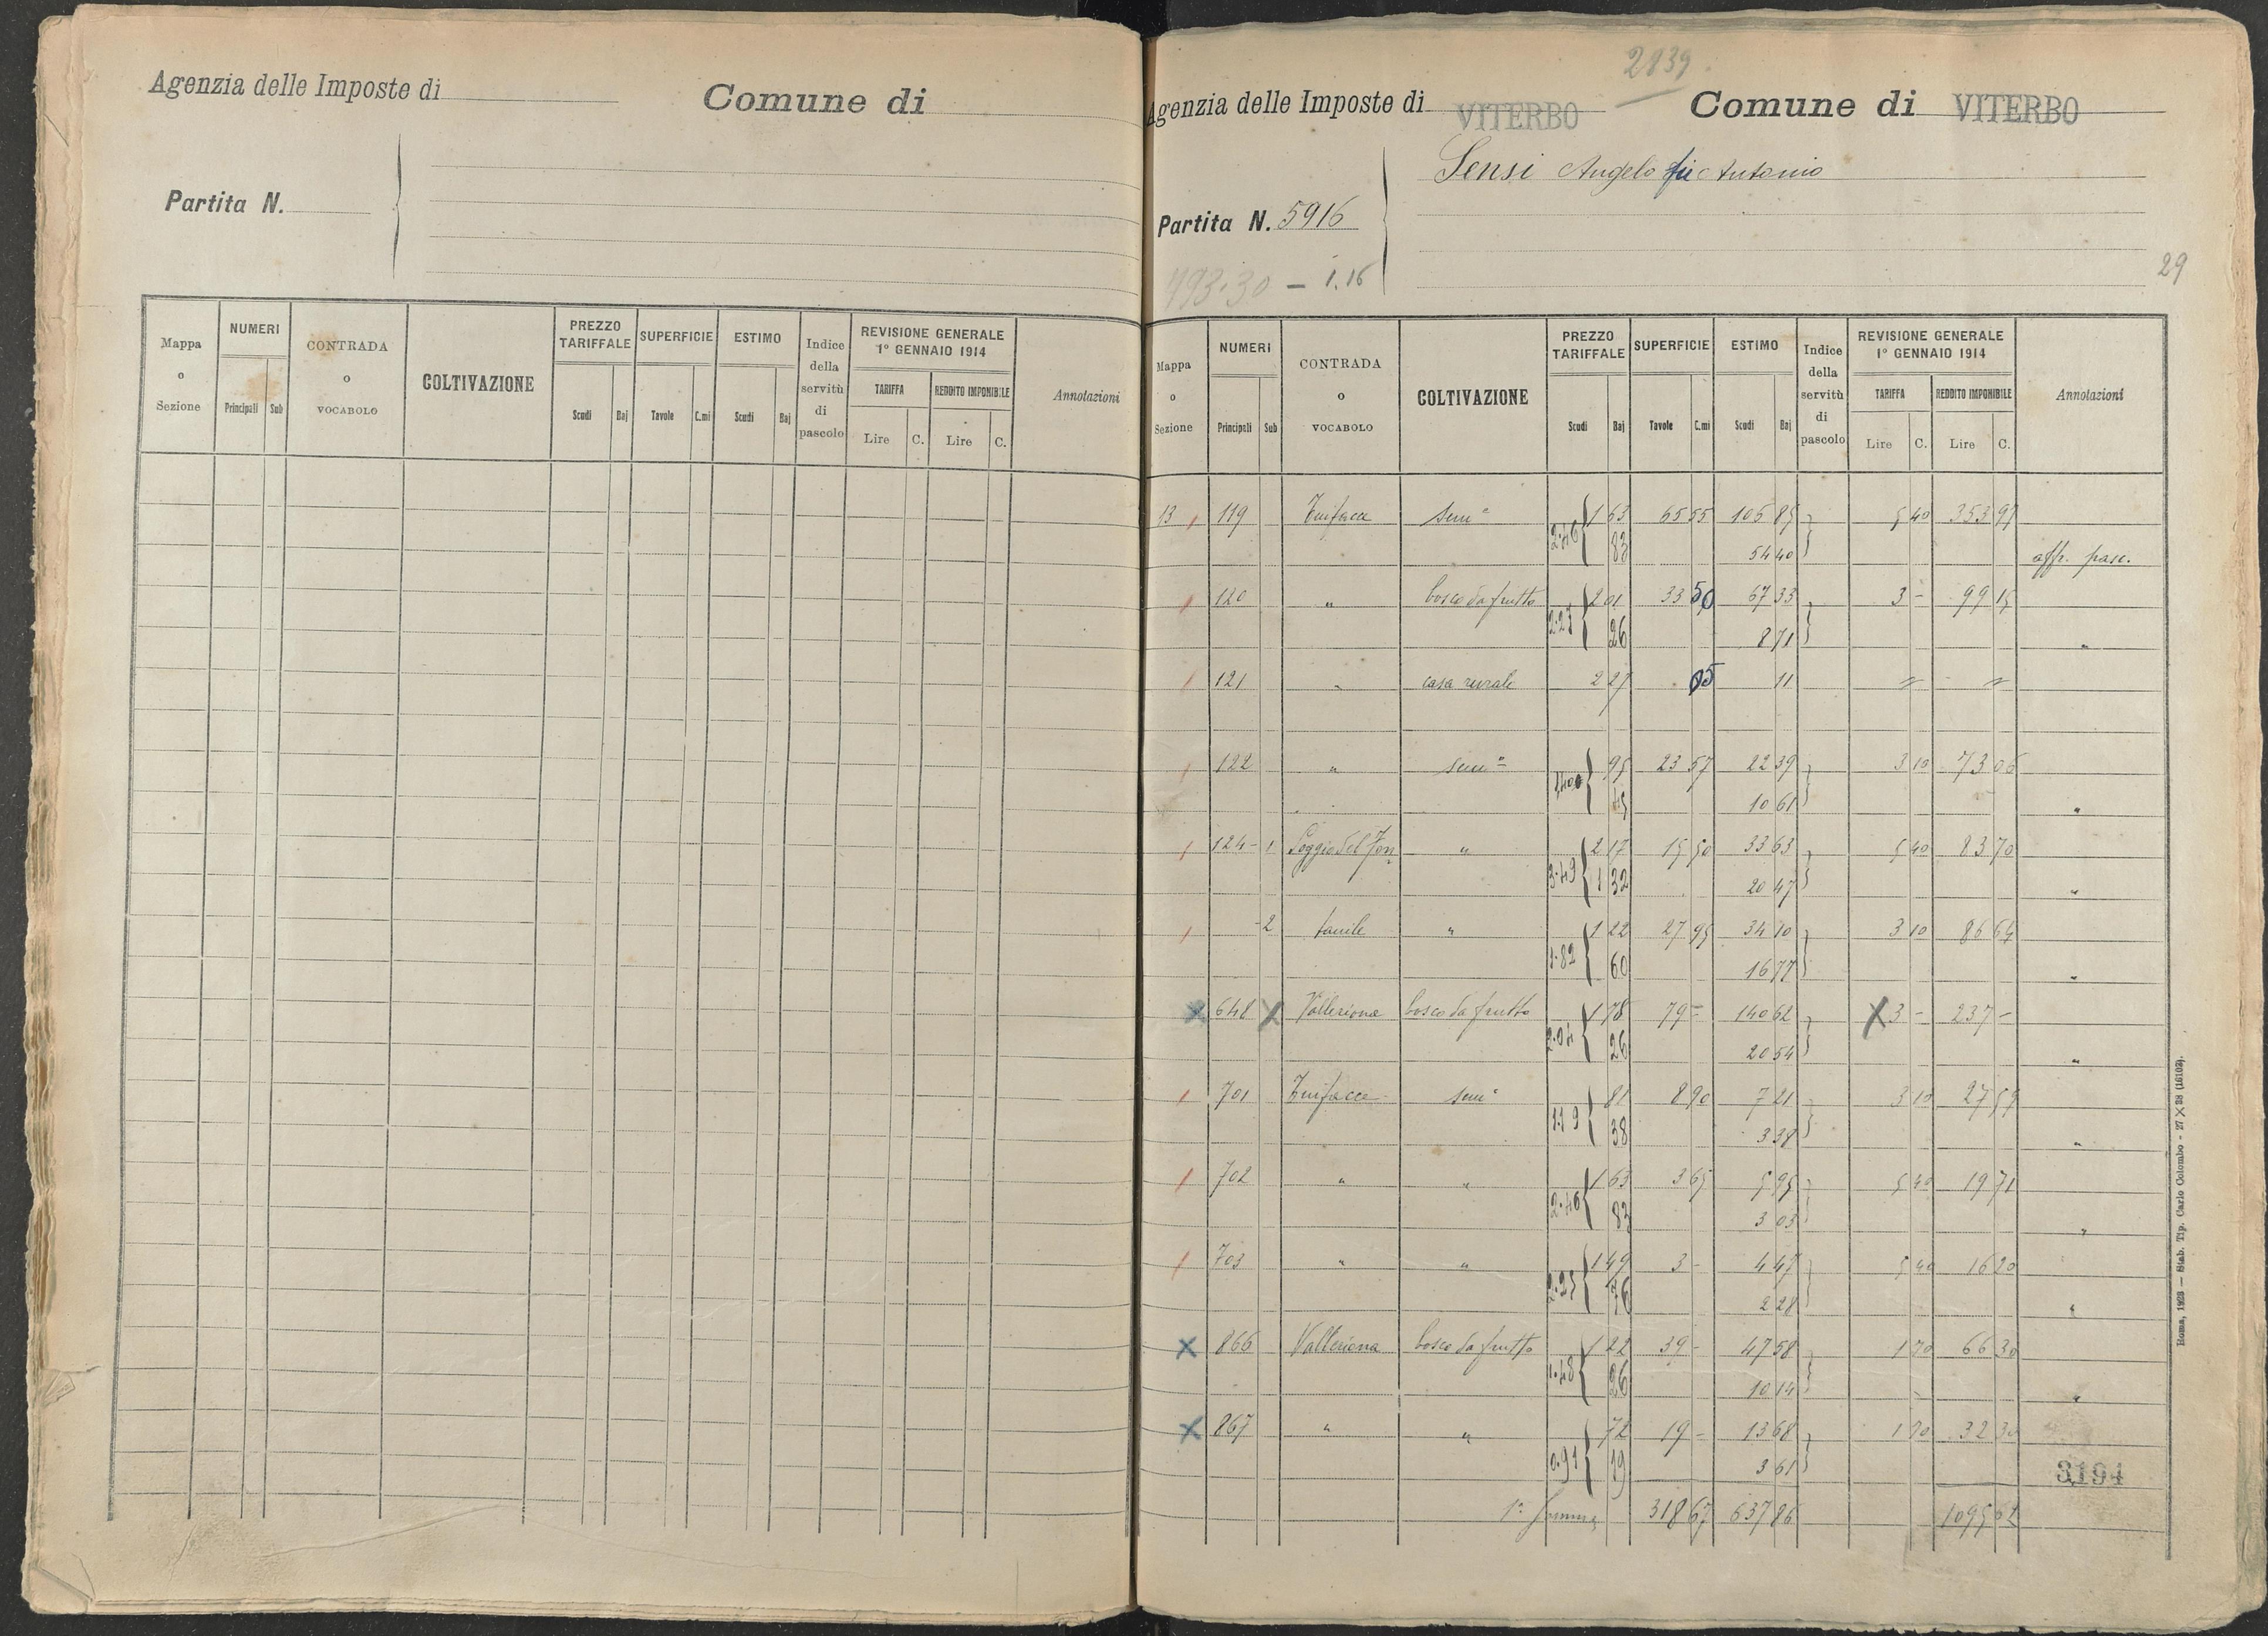 Agenzia delle Imposte di
Comune di
Partita N.
Mappa o Sezione
NUMERI
Principali Sub
CONTRADA o VOCABOLO
COLTIVAZIONE
PREZZO TARIFFALE
Scudi Baj
SUPERFICIE
Tavole C.mi
ESTIMO
Scudi Baj
Indice della servitù di pascolo
REVISIONE GENERALE 1° GENNAIO 1914
TARIFFA
Lire C.
REDDITO IMPONIBILE
Lire C.
Annotazioni
2839
Agenzia delle Imposte di VITERBO
Comune di VITERBO
Sensi Angelo fu Antonio
Partita N. 5916
793.30 - 1.16
29
Mappa o Sezione
NUMERI
Principali Sub
CONTRADA o VOCABOLO
COLTIVAZIONE
PREZZO TARIFFALE
Scudi Baj
SUPERFICIE
Tavole C.mi
ESTIMO
Scudi Baj
Indice della servitù di pascolo
REVISIONE GENERALE 1° GENNAIO 1914
TARIFFA
Lire C.
REDDITO IMPONIBILE
Lire C.
Annotazioni
13 119 sem° 1 63 65 55 106 85 5 40 353 97
2.46 83 54 40 aff. pasc.
120 " bosco da frutto 2 01 33 50 67 33 3 - 99 15
2.27 26 8 71 "
121 " casa rurale 2 27 05 11 = =
122 " sem° 95 23 57 22 39 3 10 73 06
1.40 45 10 61 "
124 - 1 Poggio del Fon " 2 17 15 50 33 63 5 40 83 70
3.49 1 32 20 47 "
- 2 " 1 22 27 95 34 10 3 10 86 64
1.82 60 16 77 "
X 648 X Valleriona bosco da frutto 1 78 79 = 140 62 X 3 - 237 -
2.04 26 20 54 "
701 sem° 81 8 90 7 21 3 10 27 59
1.19 38 3 38 "
702 " " 1 63 3 65 5 95 5 40 19 71
2.46 83 3 03 "
703 " " 1 49 3 - 4 47 5 40 16 20
2.25 76 2 28 "
X 866 Valleriona bosco da frutto 1 22 39 - 47 58 1 70 66 30
1.48 26 10 14 "
X 867 " " 72 19 - 13 68 1 70 32 30
0.91 19 3 61
3194
1ª Somma 318 67 637 86 1095 62
Roma, 1928 — Stab. Tip. Carlo Colombo - 27 X 38 (16102).